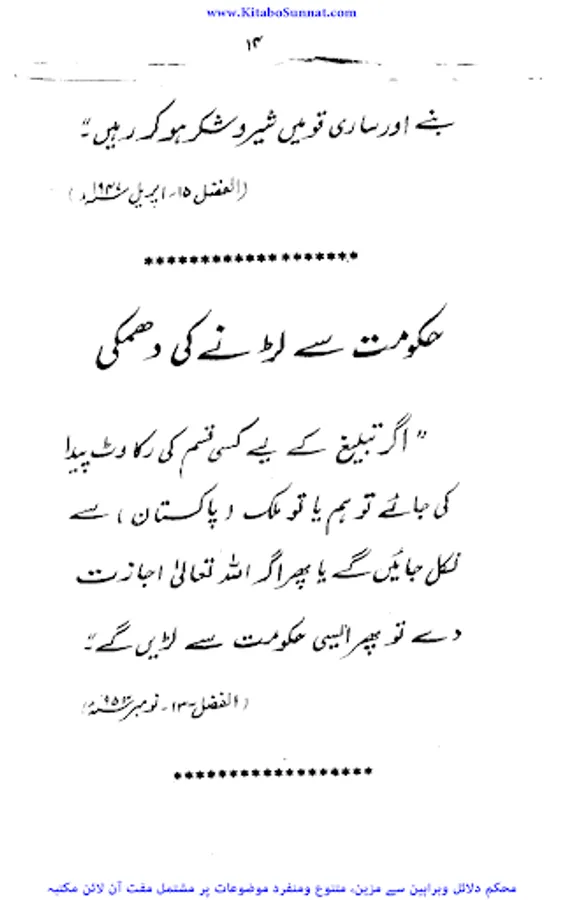 www.KitaboSunnat.com
۱۴
بنے اور ساری قومیں شیر و شکر ہو کر رہیں۔"
(الفضل ۱۵۔ اپریل ۱۹۴۷ء)
*******************
حکومت سے لڑنے کی دھمکی
"اگر تبلیغ کے لیے کسی قسم کی رکاوٹ پیدا
کی جائے تو ہم یا تو ملک (پاکستان) سے
نکل جائیں گے یا پھر اگر اللہ تعالیٰ اجازت
دے تو پھر ایسی حکومت سے لڑیں گے۔"
(الفضل ۱۳۔ نومبر
******************
محکم دلائل وبراہین سے مزین، متنوع ومنفرد موضوعات پر مشتمل مفت آن لائن مکتبہ